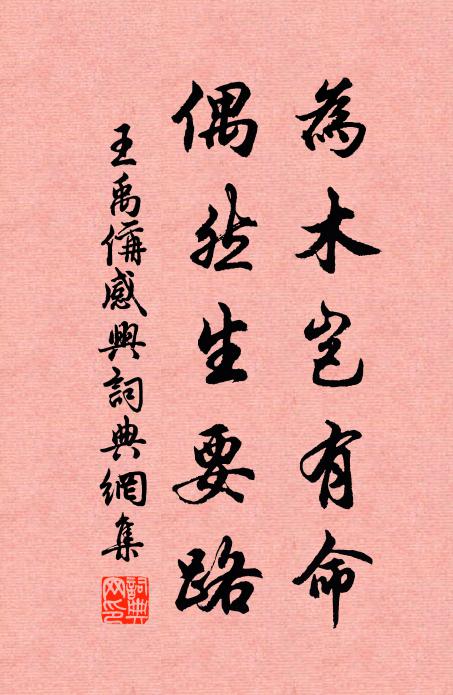 為木岂有命
偶然生要路
王禹偁感興詞典網集
詞典网印